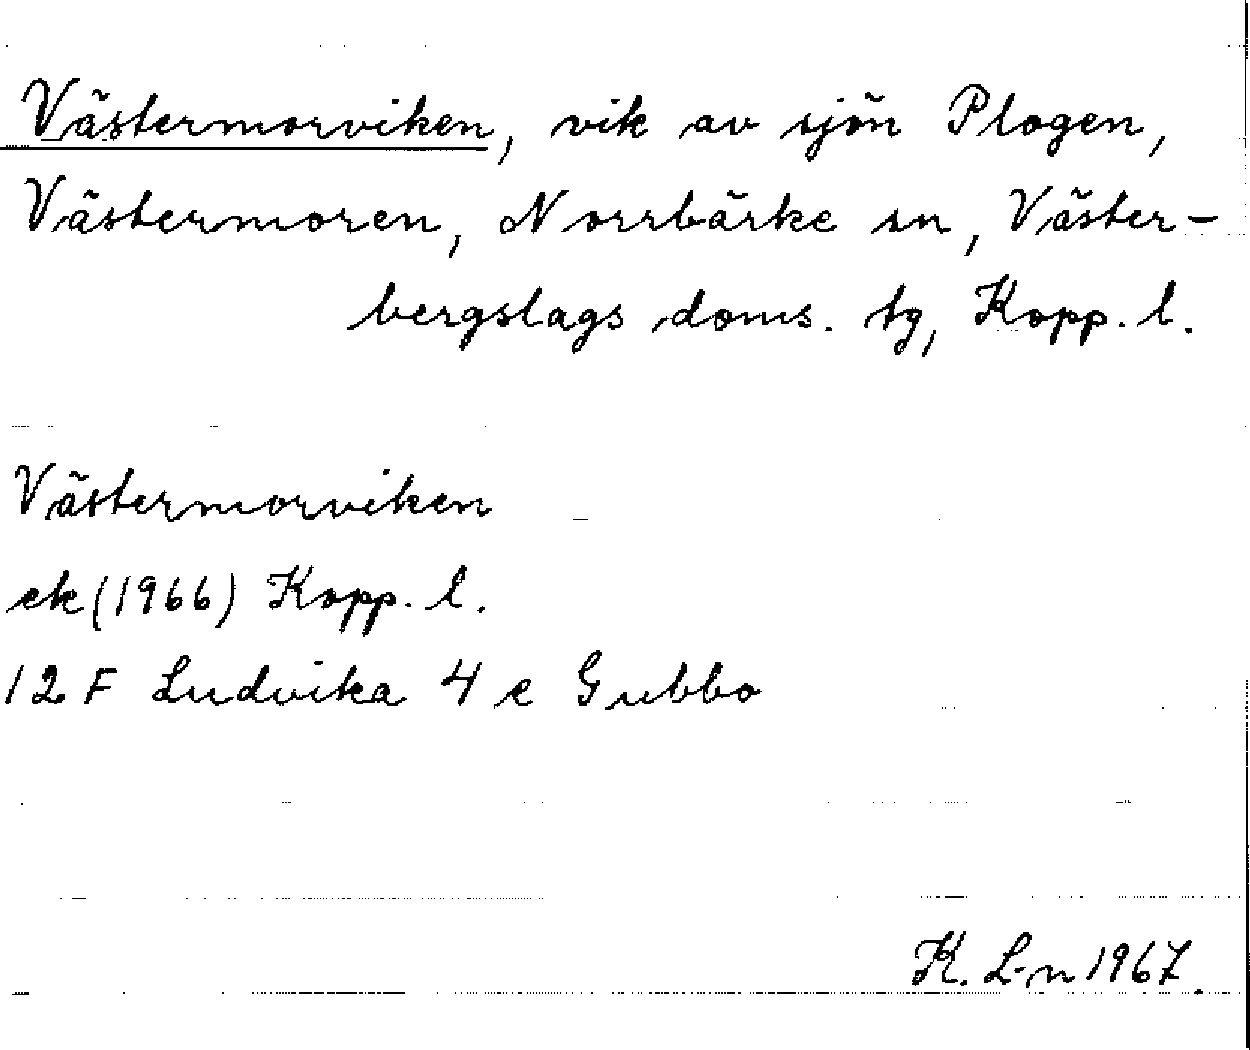 Västermorviken, vik av sjön Plogen,
Västermoren, Norrbärke sn, Väster-
bergslags doms. tg, Kopp. l.
Västermorviken
ek (1966) Kopp. l.
12 F Ludvika 4 e Gubbo
K. L-n 1967.